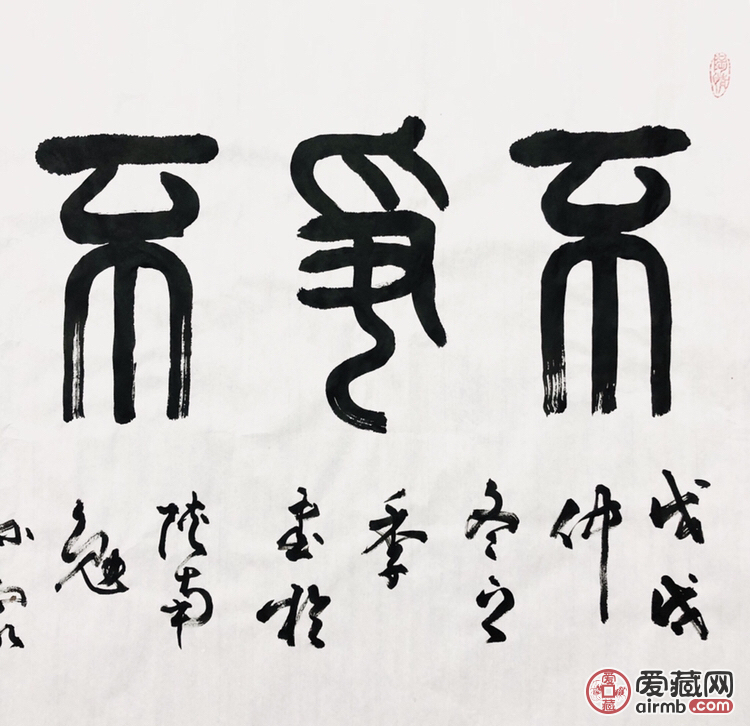 不爭不
戊戌
仲
冬之
季
書於
陕南
勉
爱藏网
airmb.com